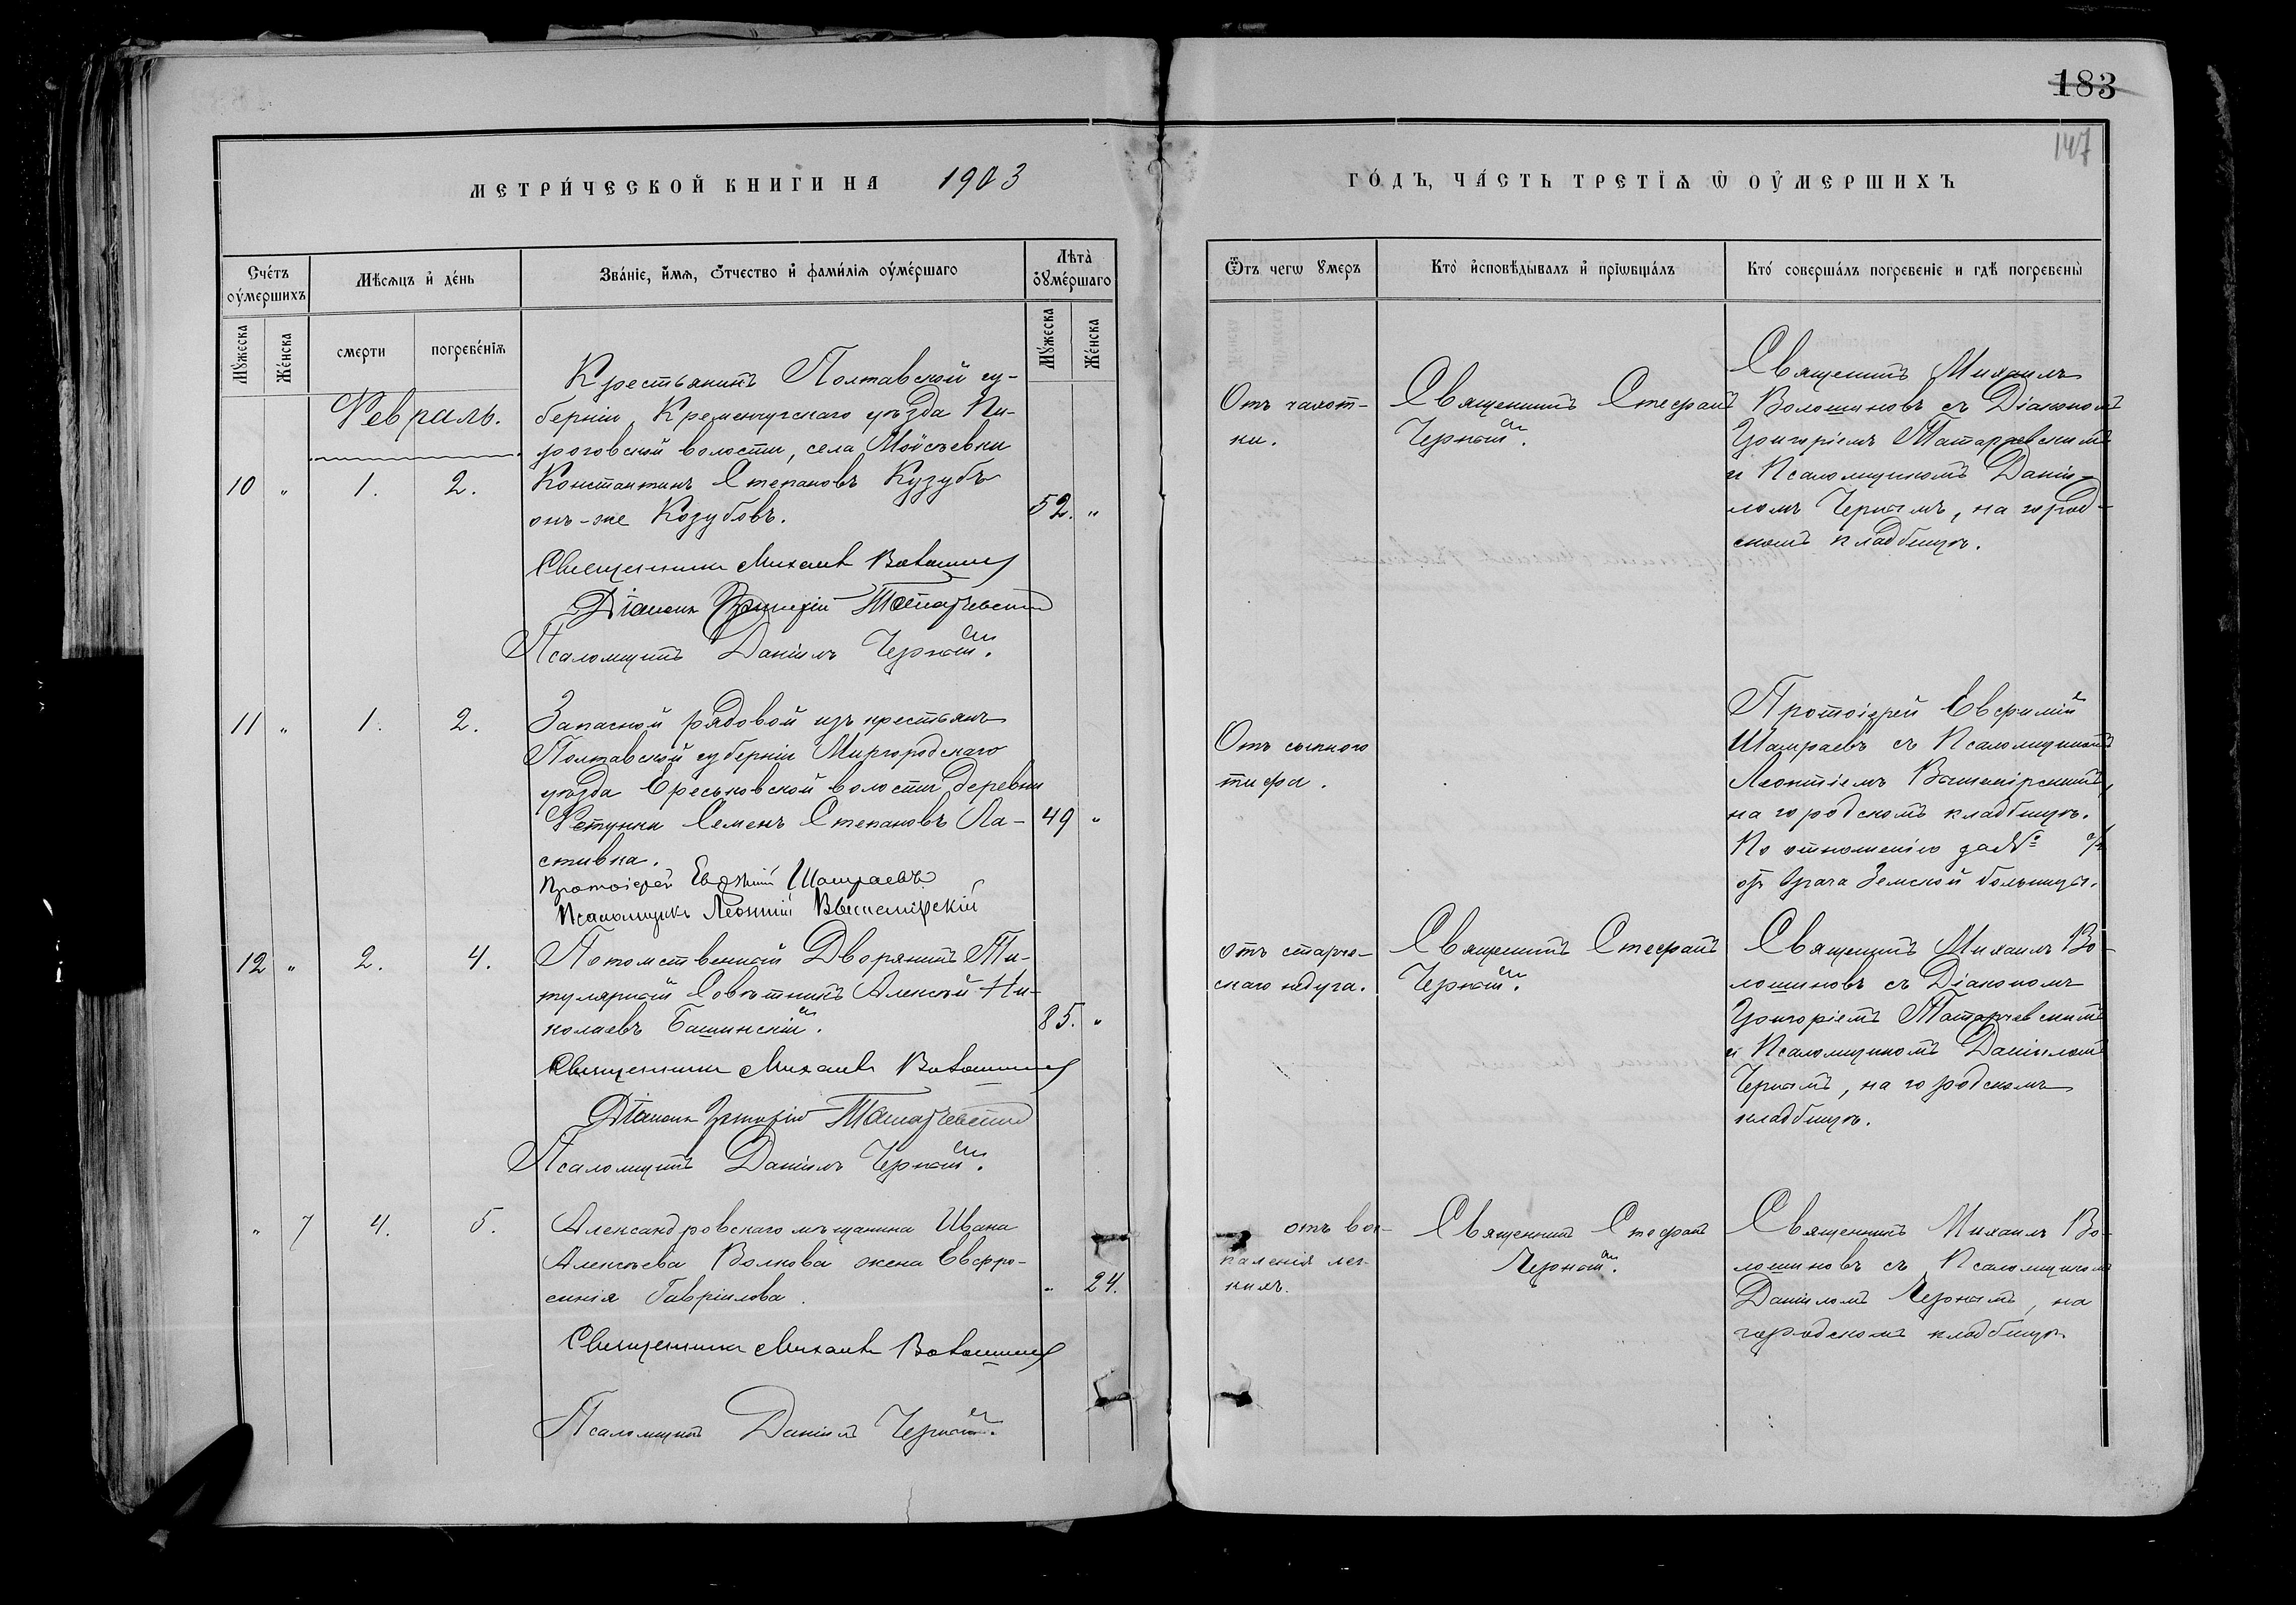 183
147
МЕТРИ́ЧЕСКОЙ КНИГИ НА 1903
ГО́ДЪ, ЧА́СТЬ ТРЕТІѦ Ѿ ОУ҆МЕРШИХЪ
Сче́тъ оу҆ме́ршихъ
Мѣсяцъ и҆ де́нь
Зва́ніе, и҆́мя, о҆́тчество и҆ фами́лія оу҆ме́ршаго
Лѣта̀ оу҆ме́ршаго
Мꙋ́жеска
Же́нска
смерти
погребе́нія
Мꙋ́жеска
Же́нска
Ѿтъ чегѡ ꙋмеръ
Кто̀ и҆сповѣ́дывалъ и҆ прїѡбща́лъ
Кто́ соверша́лъ погребеніе и гдѣ̀ погребены̀
Февраль.
10 " 1. 2.
Крестьянинъ Полтавской гу-
берніи, Кременчугскаго уѣзда Пи-
роговской волости, села Мойсѣевки
Константинъ Степановъ Кузубъ
онъ-же Козубовъ.
52. "
Священникъ Михаилъ Волошинов
Діаконъ Григорій Татаревскій
Псаломщикъ Даніилъ Черный.
Отъ чахот-
ки.
Священникъ Стефанъ
Черный.
Священникъ Михаилъ
Волошиновъ съ Діакономъ
Григоріемъ Татаревскимъ
и Псаломщикомъ Дани-
ломъ Чернымъ, на город-
скомъ кладбищѣ.
11 " 1. 2.
Запасной рядовой изъ крестьянъ
Полтавской губерніи Миргородскаго
уѣзда Ереськовской волости деревни
Семенъ Степановъ Ла-
стивка.
49 "
Протоіерей Евфимій Шамраевъ
Псаломщикъ Леонтій Вышемірскій
Отъ сыпного
тифа.
Протоіерей Евфимій
Шамраевъ съ Псаломщикомъ
Леонтіемъ Вышемірскимъ,
на городскомъ кладбищѣ.
По отношенію за №
отъ Врача Земской больницы.
12 " 2. 4.
Потомственный Дворянинъ Ти-
тулярный Совѣтникъ Алексѣй Ни-
колаевъ Башинскій.
85. "
Священникъ Михаилъ Волошинов
Діаконъ Григорій Татаревскій
Псаломщикъ Даніилъ Черный.
отъ старче-
скаго недуга.
Священникъ Стефанъ
Черный.
Священникъ Михаилъ Во-
лошиновъ съ Діакономъ
Григоріемъ Татаревскимъ
и Псаломщикомъ Даніиломъ
Чернымъ, на городскомъ
кладбищѣ.
" 7 4. 5.
Александровскаго мѣщанина Ивана
Алексѣева Волкова жена Евфро-
синія Гавріилова.
" 24.
Священникъ Михаилъ Волошинов
Псаломщикъ Даніилъ Черный.
отъ вос-
паленія лег-
кихъ.
Священникъ Стефанъ
Черный.
Священникъ Михаилъ Во-
лошиновъ съ Псаломщикомъ
Даніиломъ Чернымъ, на
городскомъ кладбищѣ.